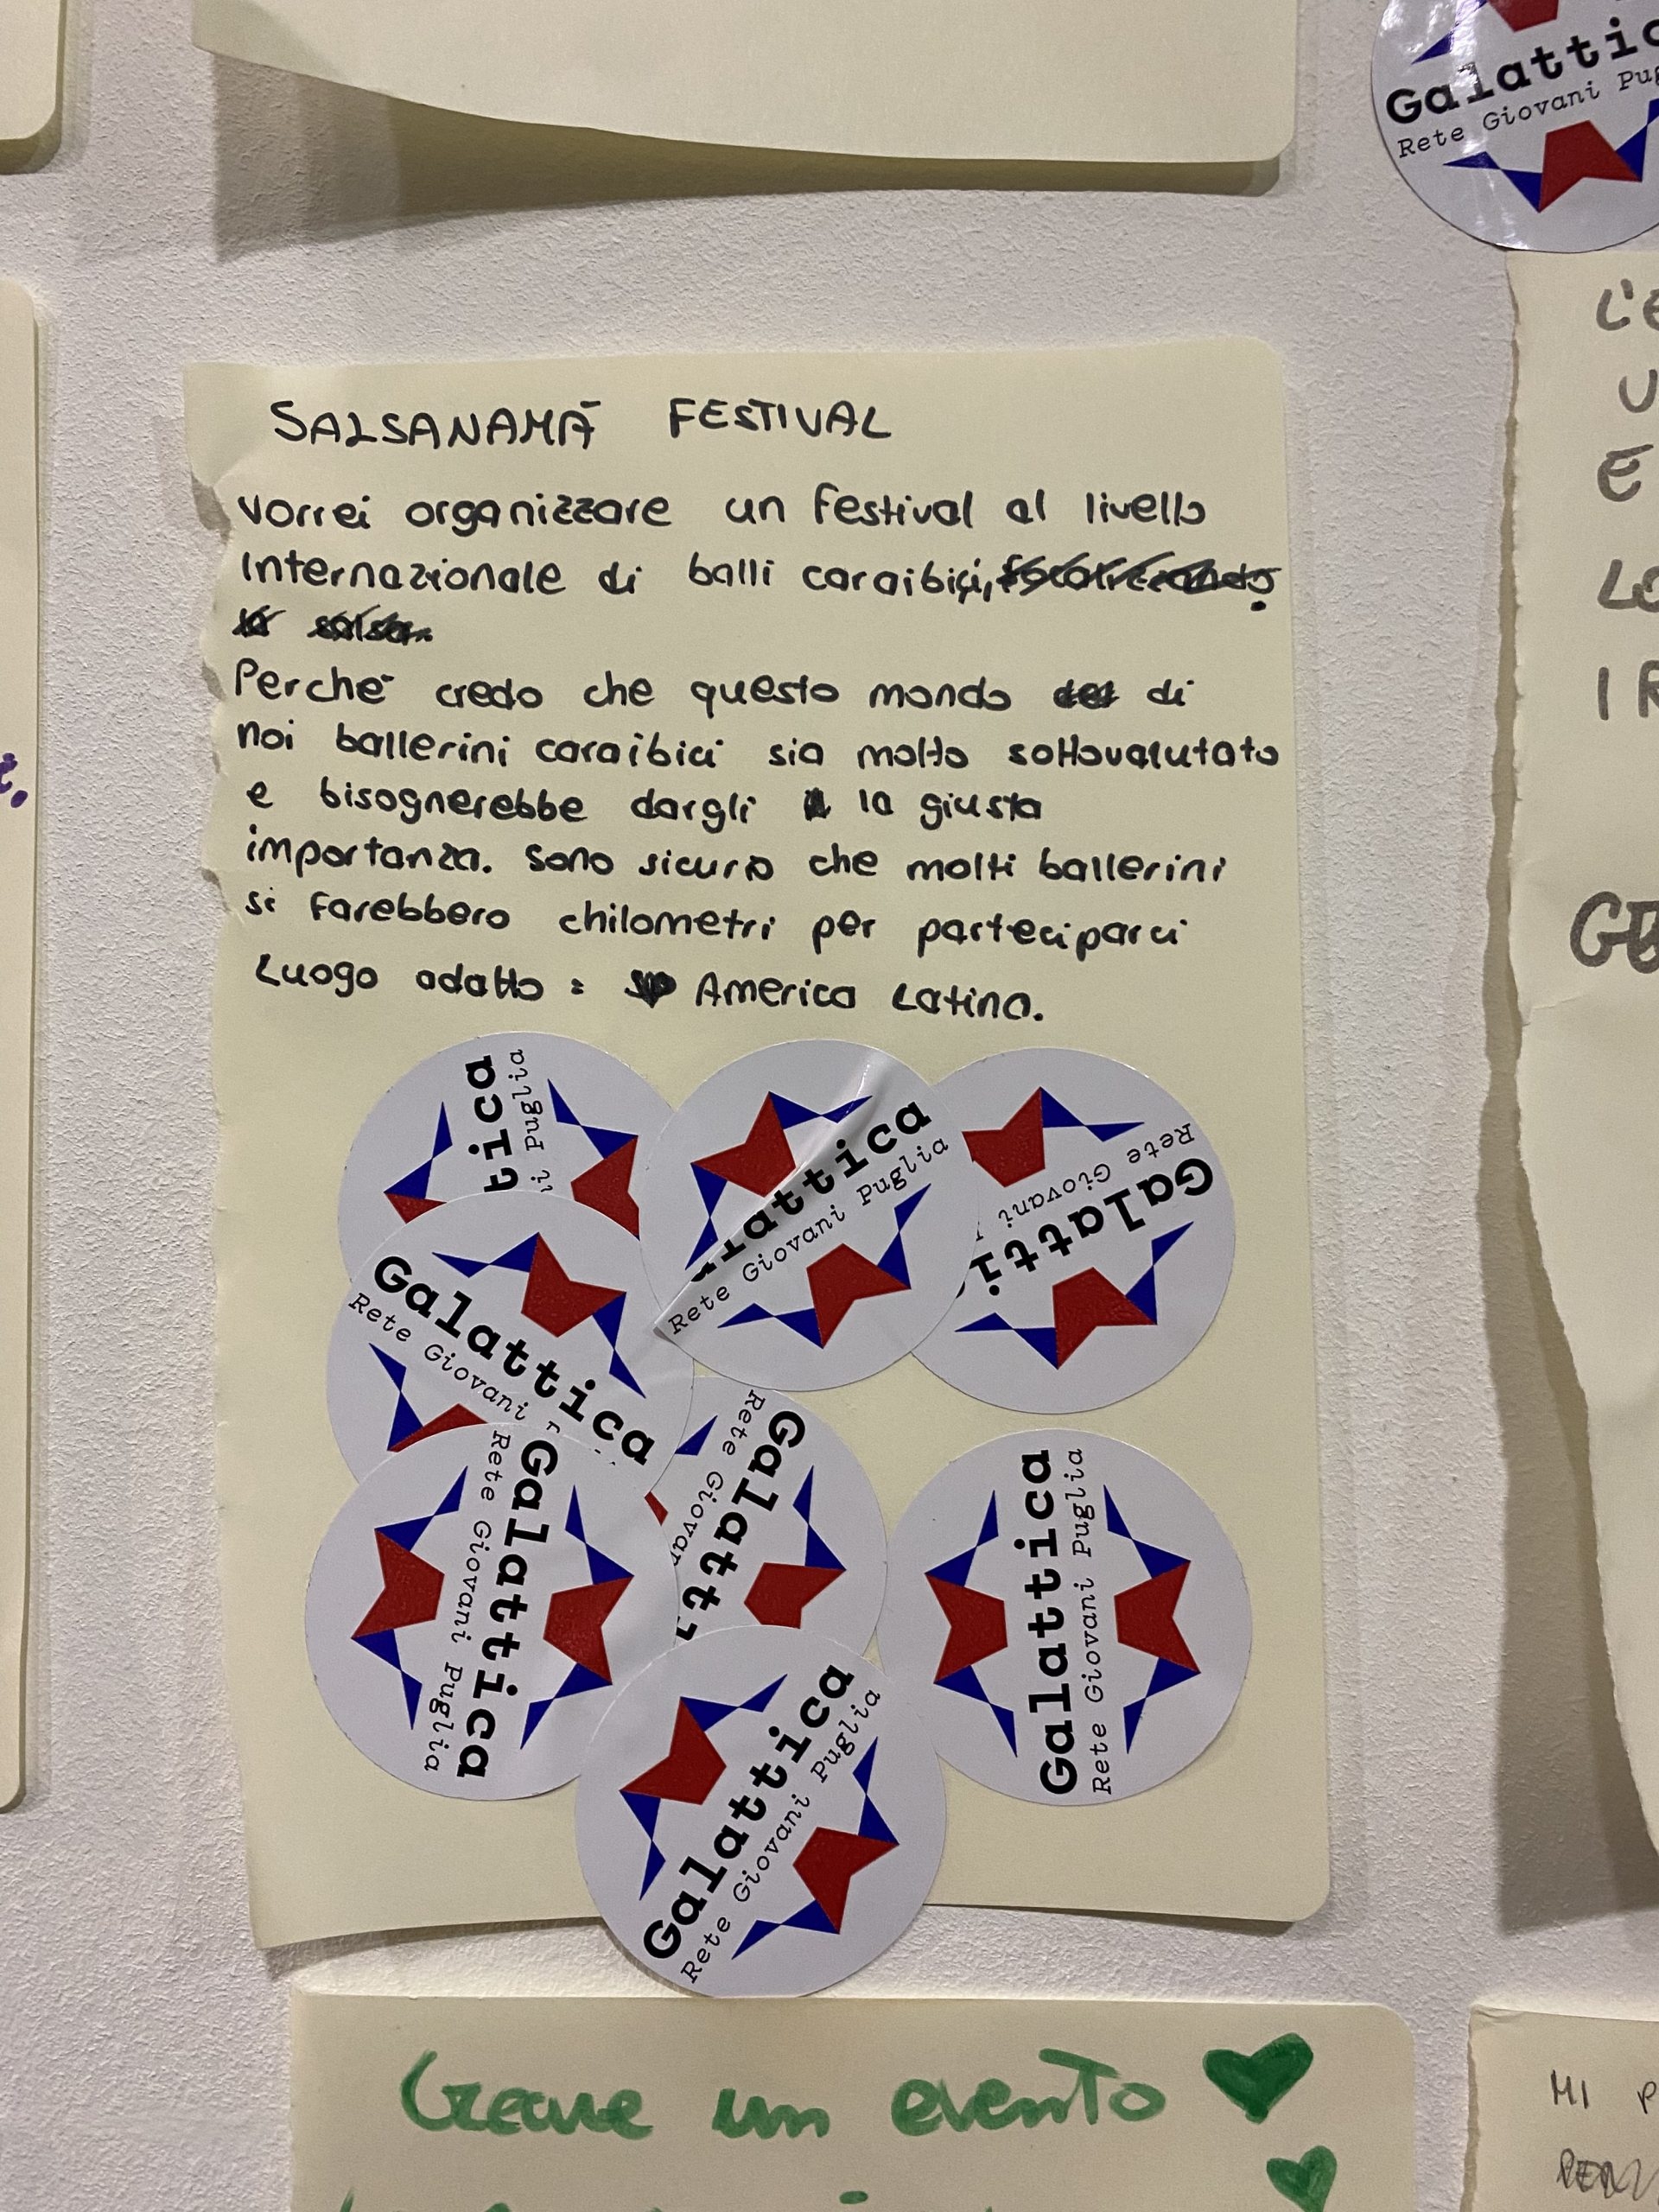 Galattic
Rete Giovani Pug
SALSANAMÀ FESTIVAL
Vorrei organizzare un festival al livello
Internazionale di balli caraibici, focalizzando
la salsa.
Perchè credo che questo mondo del di
noi ballerini caraibici sia molto sottovalutato
e bisognerebbe dargli la giusta
importanza. Sono sicuro che molti ballerini
si farebbero chilometri per parteciparci
Luogo adatto: America Latina.
L'E
U
E
LO
I R
ttica
i Puglia
alattica
Rete Giovani Puglia
Galatti
Rete Giovani
Galattica
Rete Giovani
Galattica
Rete Giovani Puglia
Galatti
Rete Giovan
Galattica
Rete Giovani Puglia
Galattica
Rete Giovani Puglia
Creare un evento
MI P